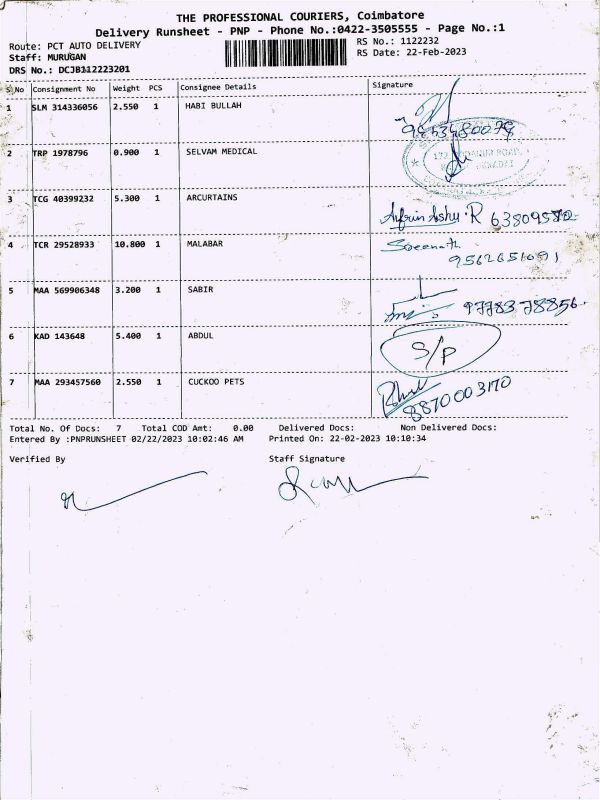 THE PROFESSIONAL COURIERS, Coimbatore
Delivery Runsheet - PNP - Phone No.:0422-3505555 - Page No.:1
Route: PCT AUTO DELIVERY RS No.: 1122232
Staff: MURUGAN RS Date: 22-Feb-2023
DRS No.: DCJB112223201
S No Consignment No Weight PCS Consignee Details Signature
1 SLM 314336056 2.550 1 HABI BULLAH
2 TRP 1978796 0.900 1 SELVAM MEDICAL
3 TCG 40399232 5.300 1 ARCURTAINS
4 TCR 29528933 10.800 1 MALABAR Sreenath
9562651091
5 MAA 569906348 3.200 1 SABIR
6 KAD 143648 5.400 1 ABDUL S/P
7 MAA 293457560 2.550 1 CUCKOO PETS
8870003170
Total No. Of Docs: 7 Total COD Amt: 0.00 Delivered Docs: Non Delivered Docs:
Entered By :PNPRUNSHEET 02/22/2023 10:02:46 AM Printed On: 22-02-2023 10:10:34
Verified By Staff Signature